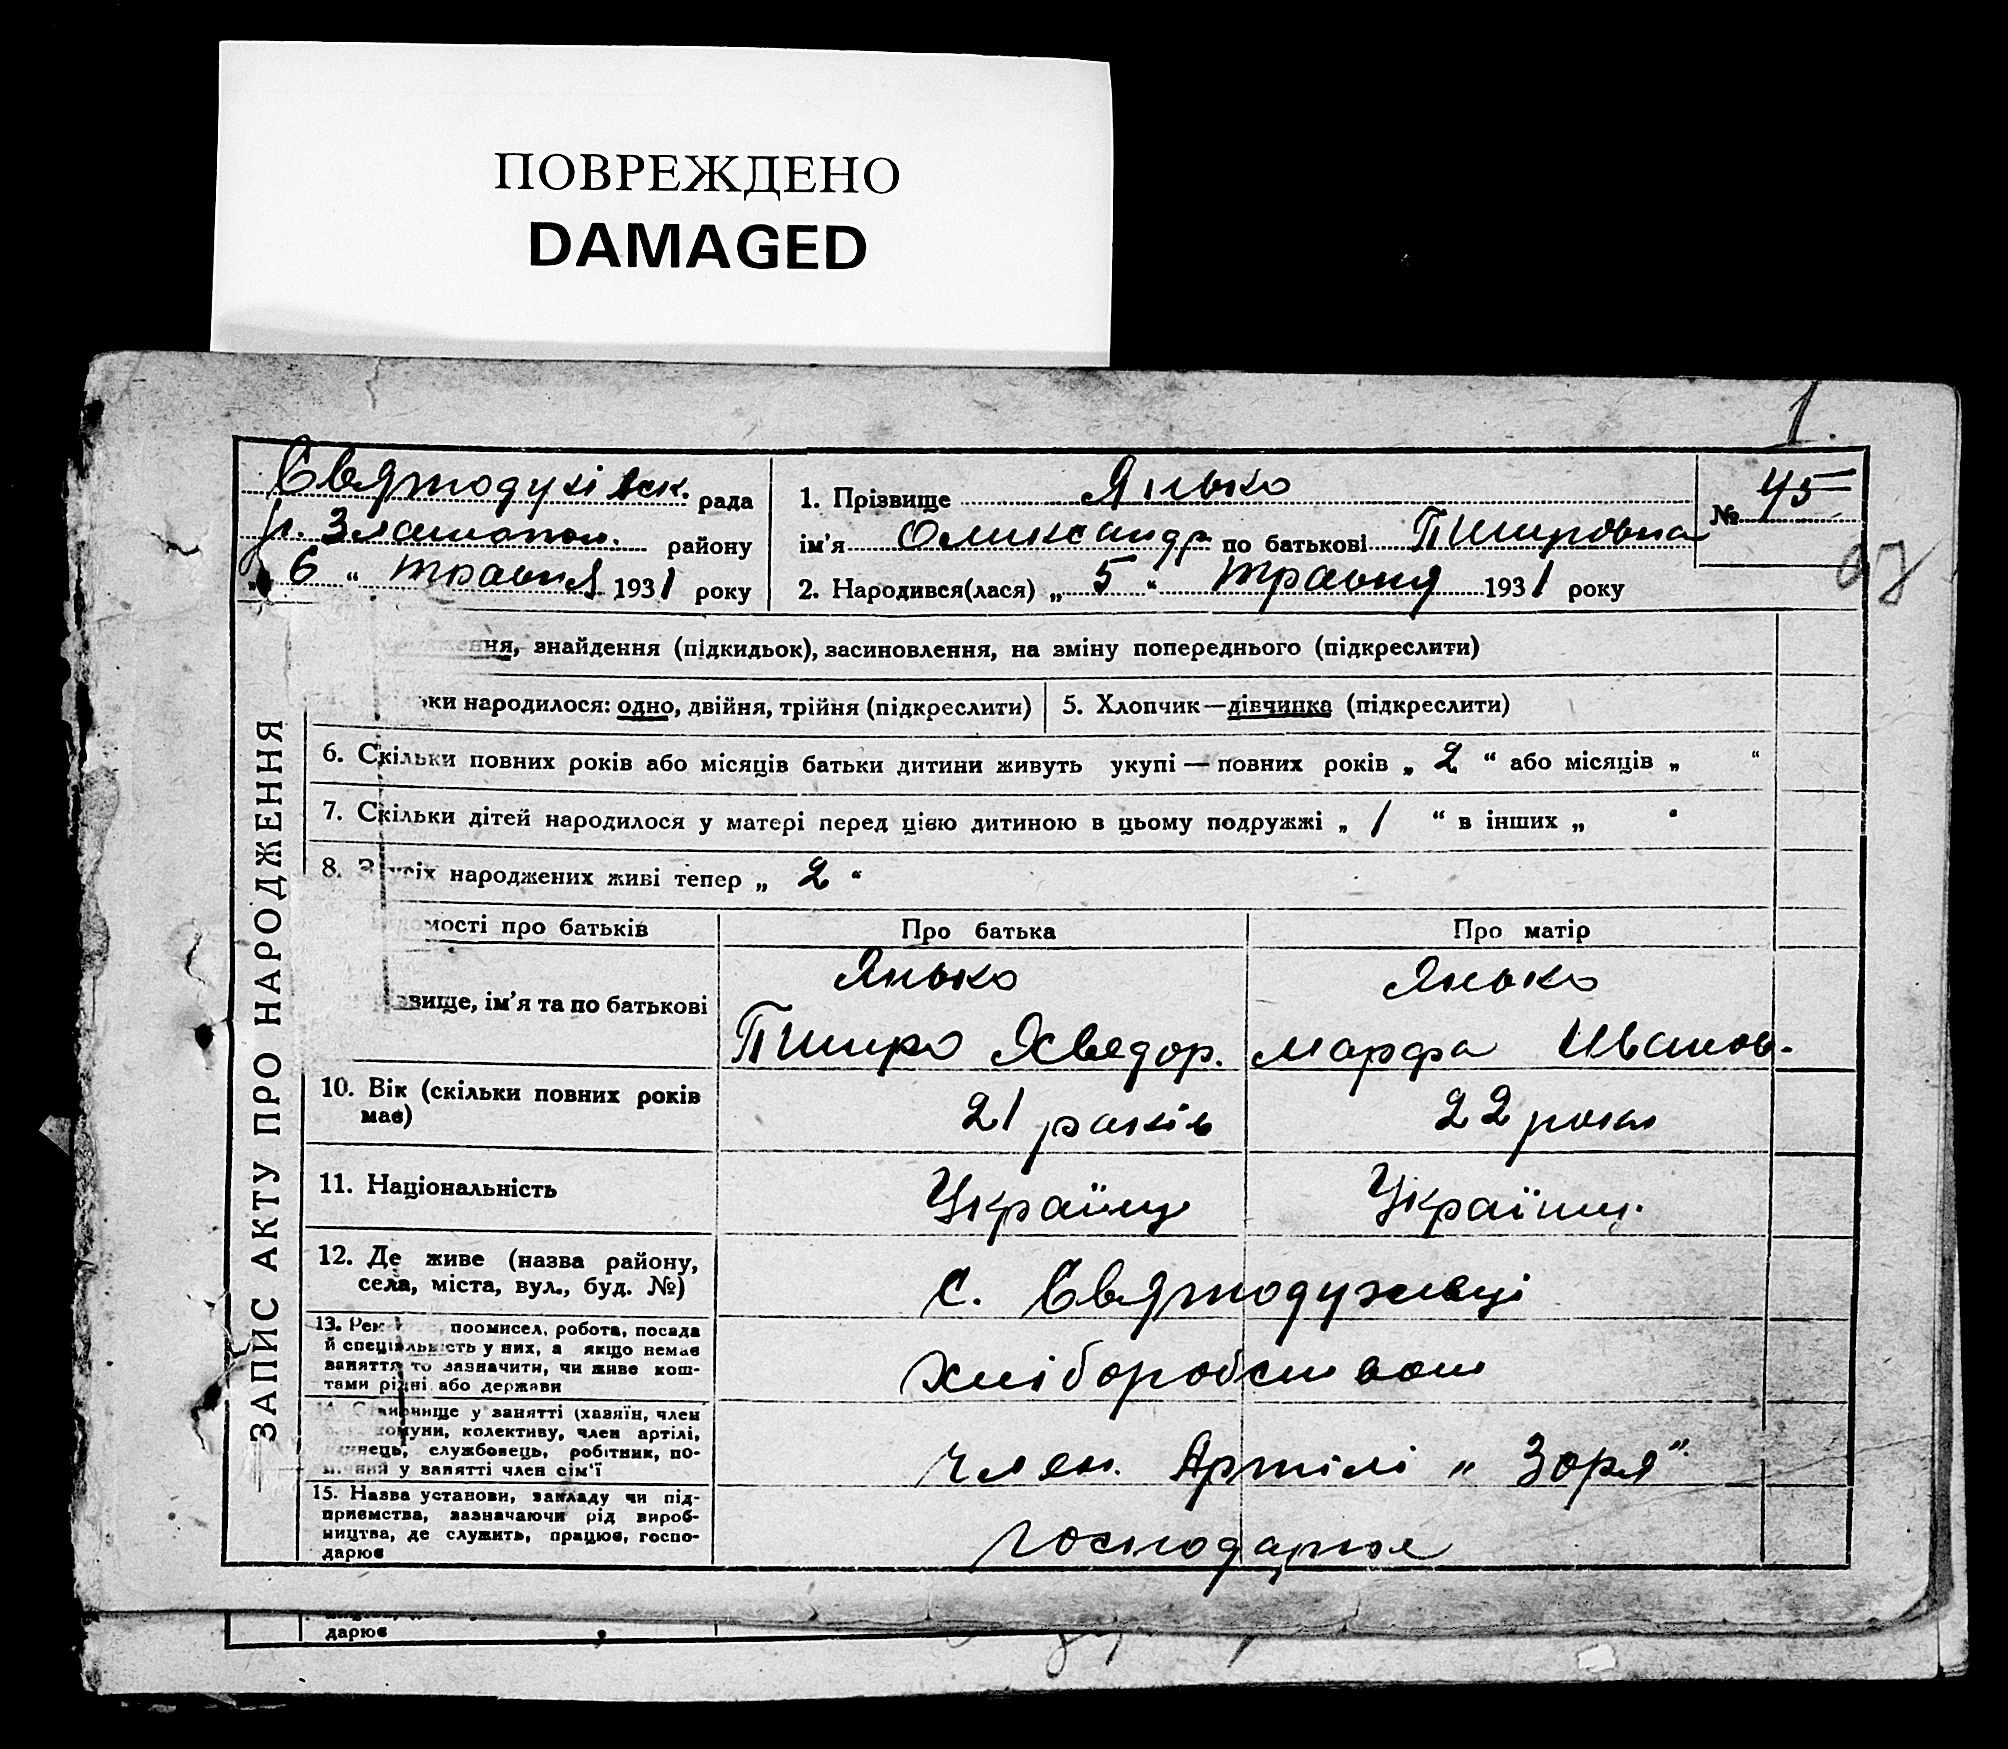 ПОВРЕЖДЕНО
DAMAGED
1.
Святодухівск. рада
р. Златопол. району
„ 6 “ травня 1931 року
1. Прізвище Янько
№ 45
ім'я Олександр. по батькові Пимровна
2. Народився(лася) „ 5 “ травня 1931 року
ЗАПИС АКТУ ПРО НАРОДЖЕННЯ
ння, знайдення (підкидьок), засиновлення, на зміну попереднього (підкреслити)
ьки народилося: одно, двійня, трійня (підкреслити)
5. Хлопчик—дівчинка (підкреслити)
6. Скільки повних років або місяців батьки дитини живуть укупі — повних років „ 2 “ або місяців „ “
7. Скільки дітей народилося у матері перед цією дитиною в цьому подружжі „ 1 “ в інших „ “
8. З усіх народжених живі тепер „ 2 “
домості про батьків
Про батька
Про матір
звище, ім'я та по батькові
Янько
Янько
Хведор.
Марфа Иванов.
10. Вік (скільки повних років
має)
21 років
22 роки
11. Національність
Україн
Україин.
12. Де живе (назва району,
села, міста, вул., буд. №)
с. Святодухівці
13. Рем промисел, робота, посада
й спеціяльність у них, а якщо немає
заняття то зазначити, чи живе кош-
тами рідні або держави
хліборобством
Становище у занятті (хазяїн, член
комуни, колективу, член артілі,
службовець, робітник, по-
у занятті член сім'ї
член. Артілі „ Зоря"
15. Назва установи, закладу чи під-
приємства, зазначаючи рід вироб-
ництва, де служить, працює, госпо-
дарює
господарює
дарює